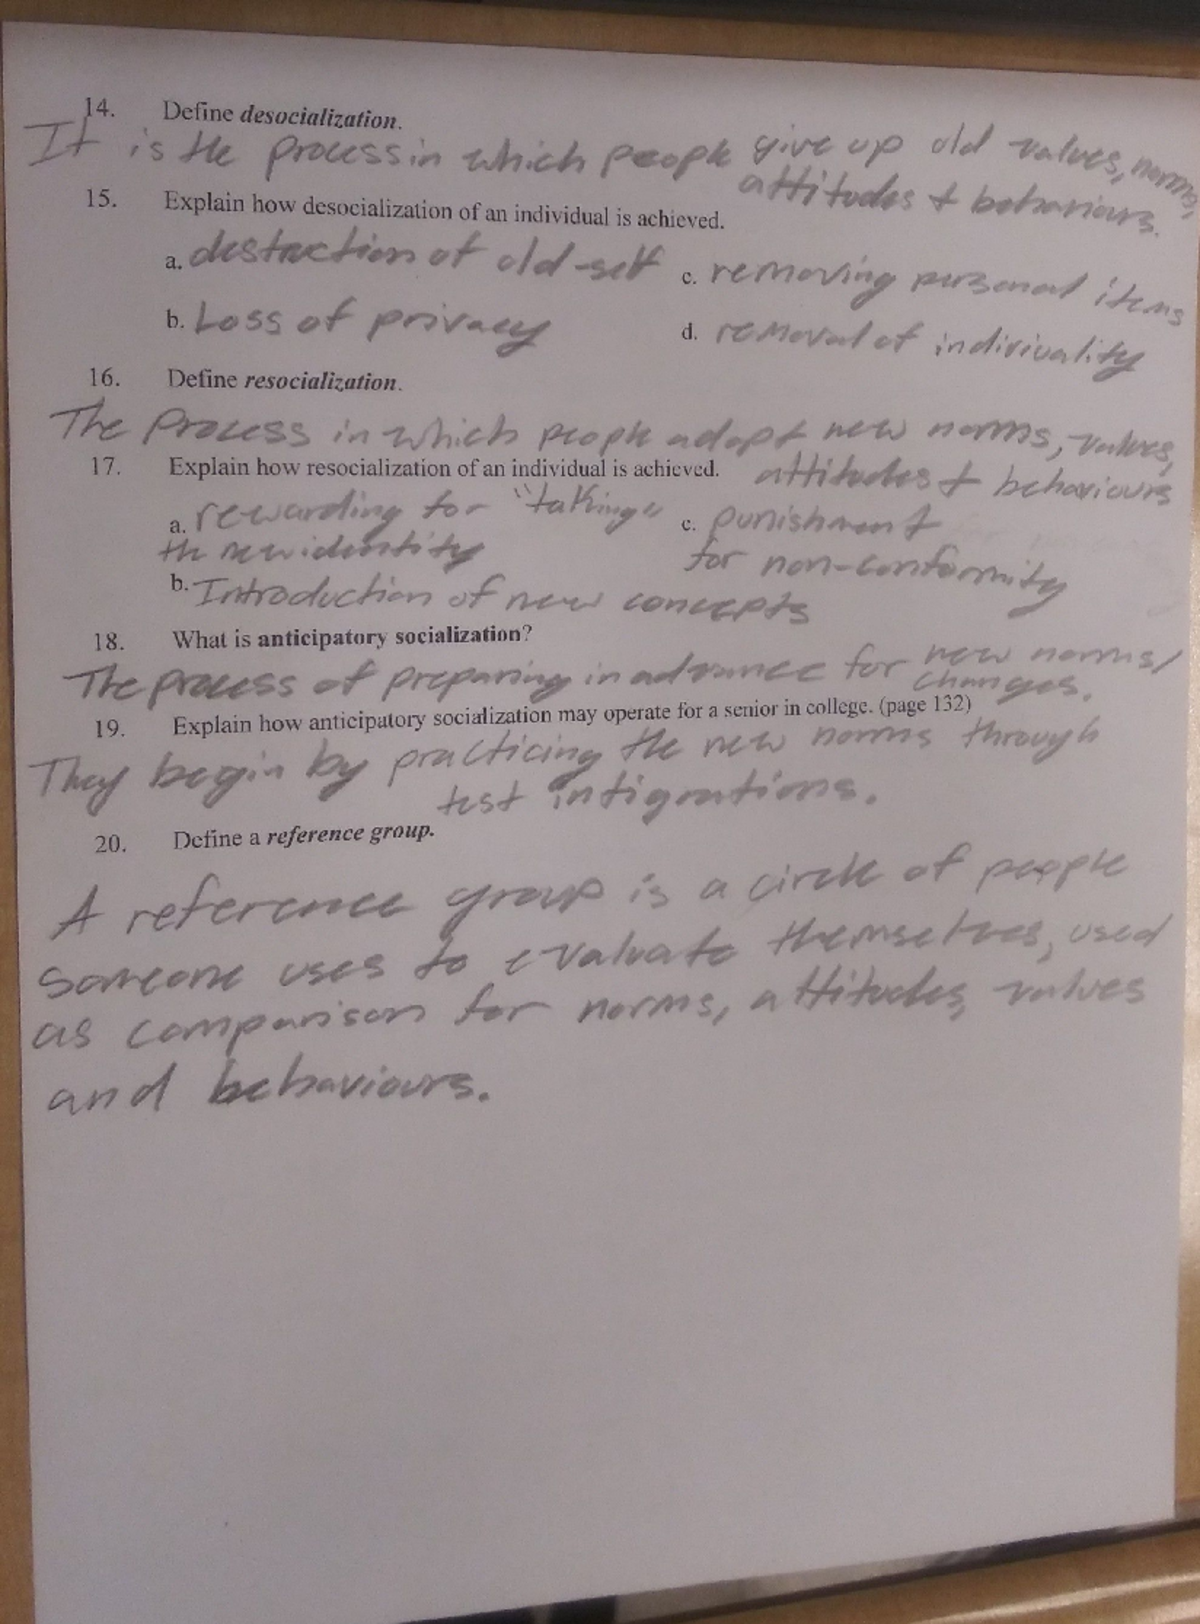 14. Define desocialization.
It is the process in which people give up old values, norms,
attitudes & behaviours.
15. Explain how desocialization of an individual is achieved.
a. destruction of old-self c. removing personal items
b. Loss of privacy d. removal of indiviuality
16. Define resocialization.
The Process in which people adopt new norms, values,
attitudes & behaviours
17. Explain how resocialization of an individual is achieved.
a. rewarding for "taking" c. punishment
the new identity for non-conformity
b. Introduction of new concepts
18. What is anticipatory socialization?
The process of preparing in advance for new norms/
changes.
19. Explain how anticipatory socialization may operate for a senior in college. (page 132)
They begin by practicing the new norms through
test intigrations.
20. Define a reference group.
A reference group is a circle of people
someone uses to evaluate themselves, used
as comparison for norms, attitudes, values
and behaviours.